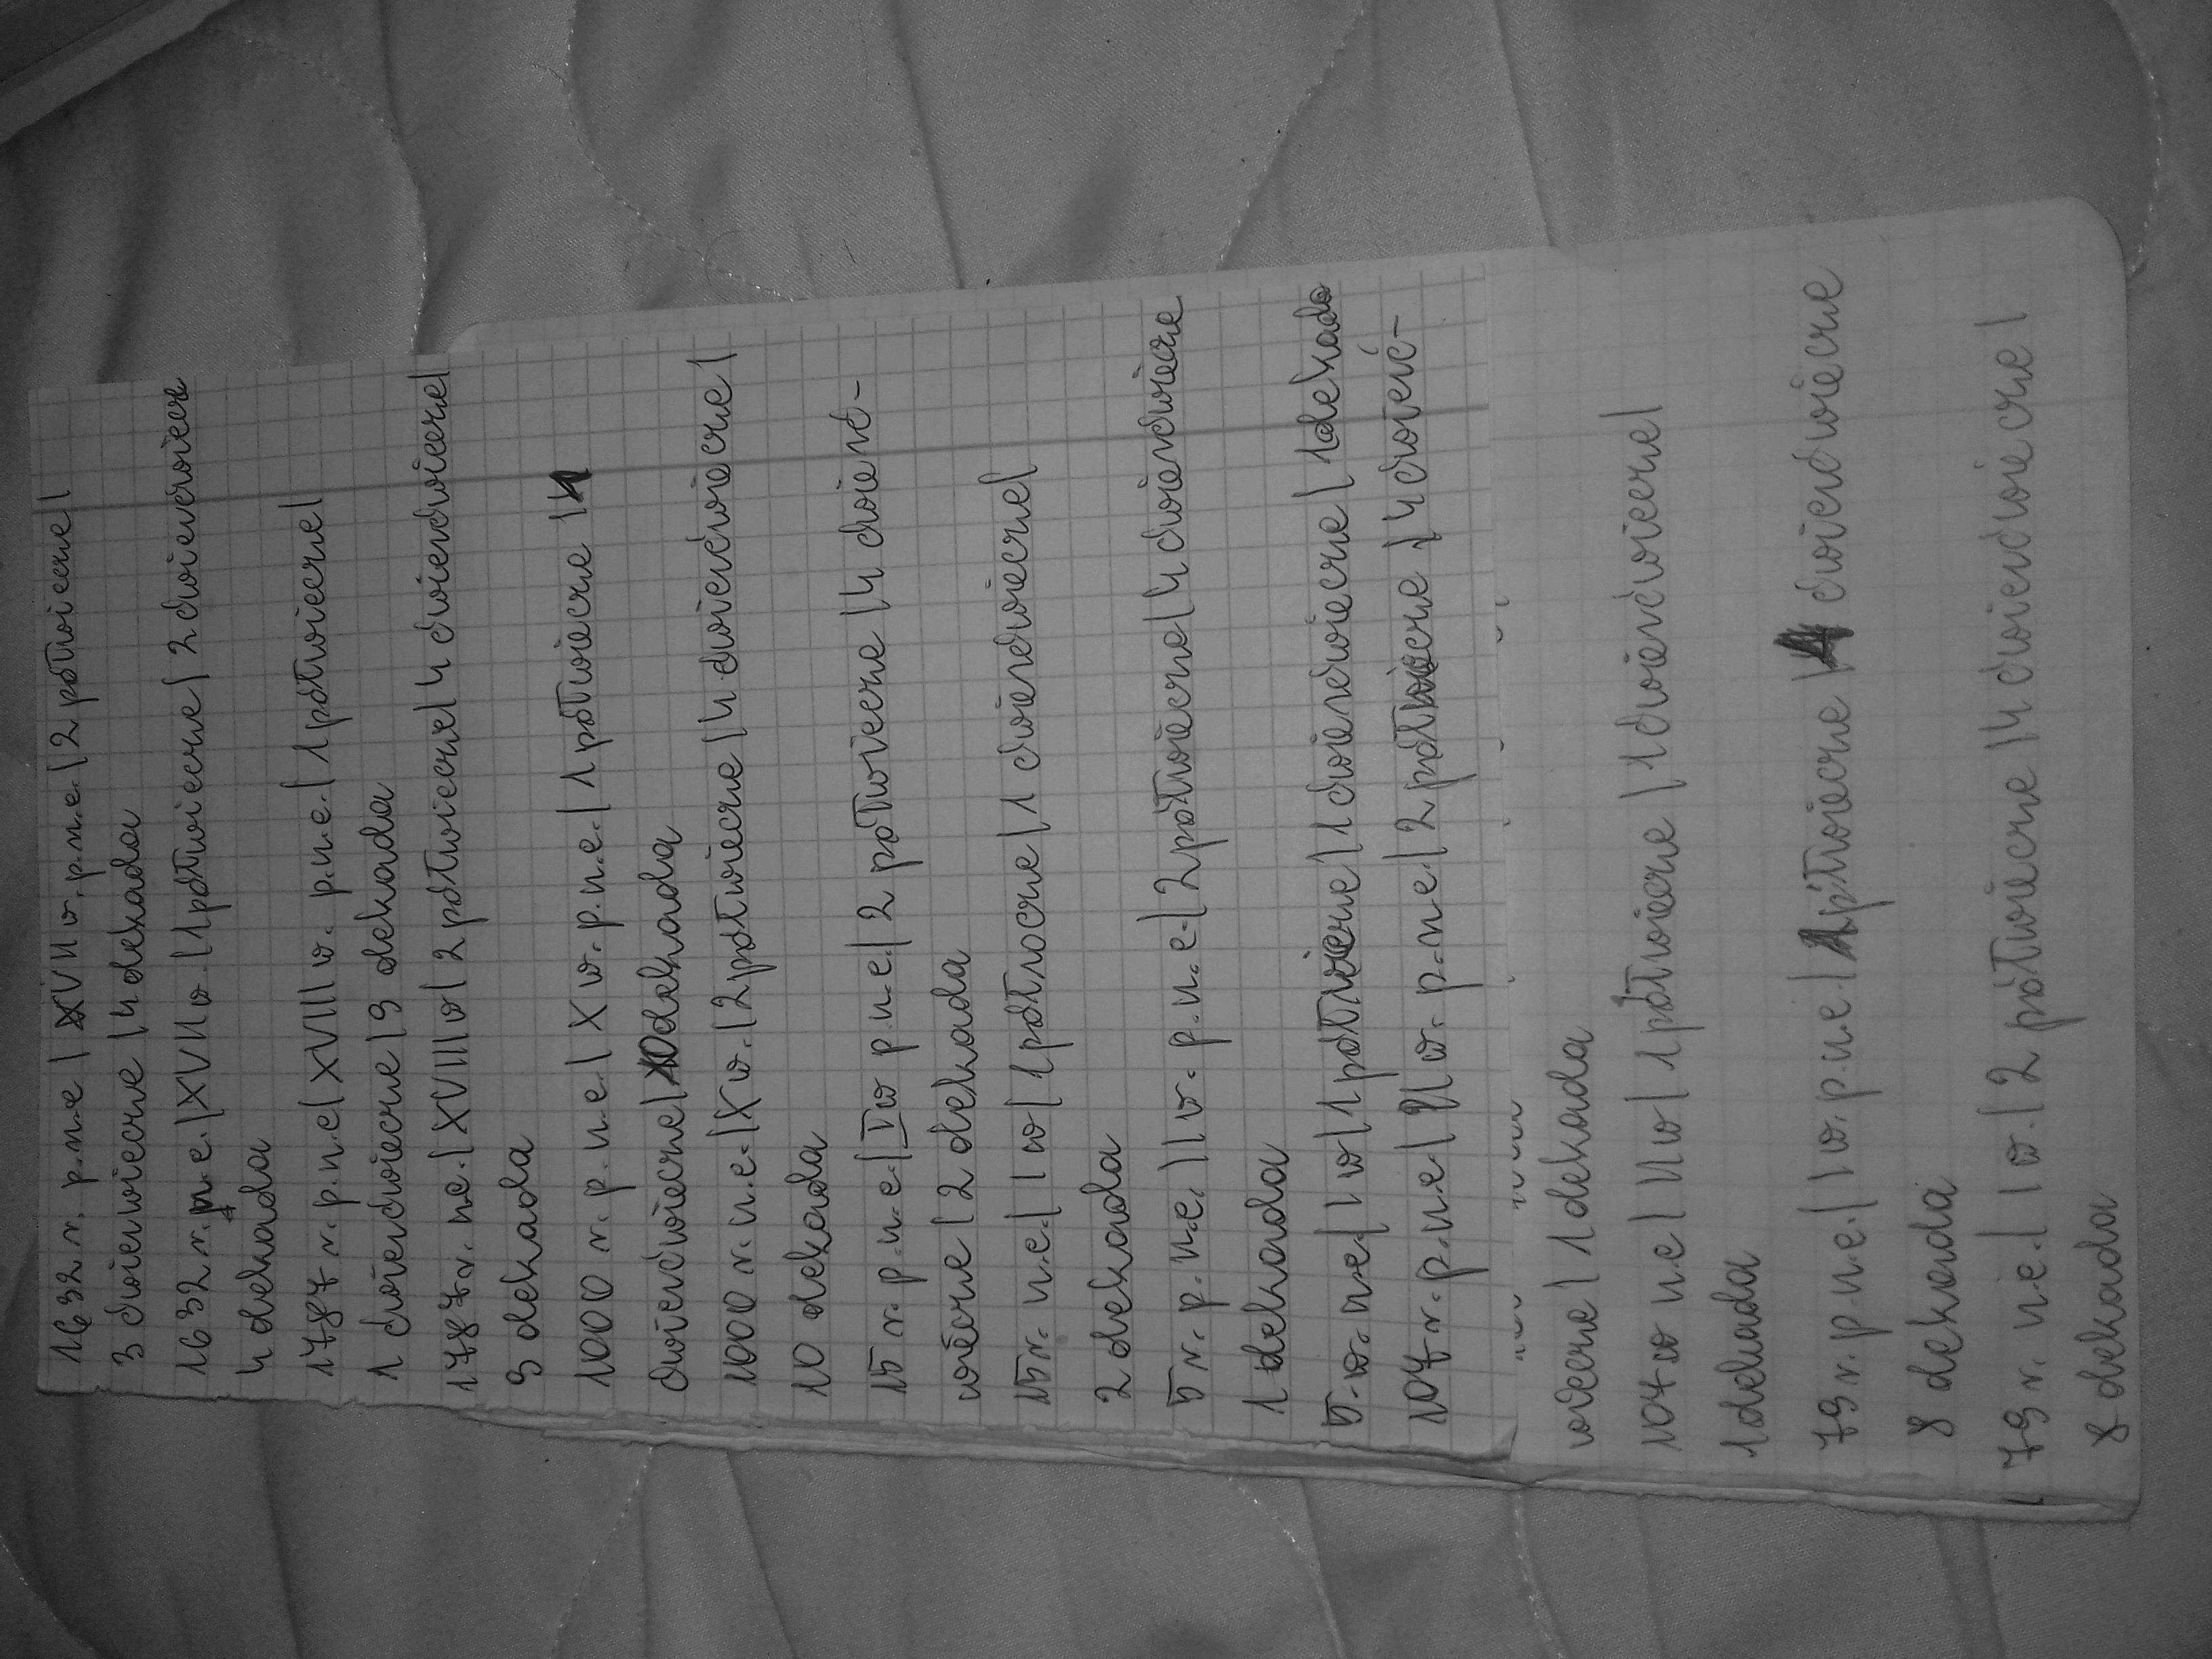 1632 r. p.n.e | XVII w. p.n.e. | 2 półwiecze |
3 ćwierćwiecze | 4 dekada
1632 r. n.e. | XVII w. | 1 półwiecze | 2 ćwierćwiecz
4 dekada
1787 r. p.n.e | XVIII w. p.n.e. | 1 półwiecze |
1 ćwierćwiecze | 9 dekada
1787 r. n.e. | XVIII w | 2 półwiecze | 4 ćwierćwiecze |
9 dekada
1000 r. p.n.e. | X w. p.n.e. | 1 półwiecze | 1
ćwierćwiecze | 10 dekada
1000 r. n.e. | X w. | 2 półwiecze | 4 ćwierćwiecze |
10 dekada
15 r. p.n.e. | I w p.n.e. | 2 półwiecze | 4 ćwierć-
wiecze | 2 dekada
15 r. n.e. | I w | 1 półwiecze | 1 ćwierćwiecze |
2 dekada
5 r. p.n.e. | I w. p.n.e. | 2 półwiecze | 4 ćwierćwiecze
1 dekada
5. w. n.e. | I w | 1 półwiecze | 1 ćwierćwiecze | 1 dekada
107 r. p.n.e | II w. p.n.e | 2 półwiecze | 4 ćwierć-
wiecze | 1 dekada
107 w n.e | II w | 1 półwiecze | 1 ćwierćwiecze |
1 dekada
79 r. p.n.e. | I w. p.n.e. | 1 półwiecze | 1 ćwierćwiecze
8 dekada
79 r. n.e. | I w. | 2 półwiecze | 4 ćwierćwiecze |
8 dekada